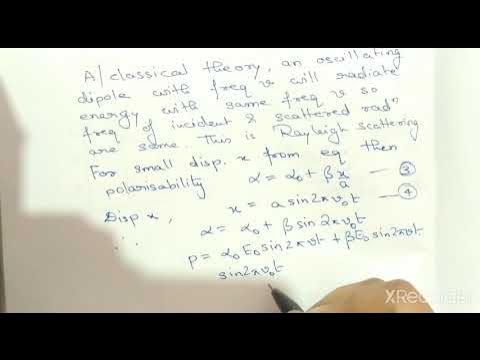 A/ classical theory, an oscillating
dipole with freq ν will radiate
energy with same freq ν so
freq of incident & scattered radn
are same. This is Rayleigh scattering
For small disp. x from eq then
polarisability α = α₀ + β x/a — ③
Disp x, x = a sin2πν₀t — ④
∴ α = α₀ + β sin 2πν₀t
p = α₀E₀ sin2πνt + βE₀ sin2πνt
sin2πν₀t
XRecorder